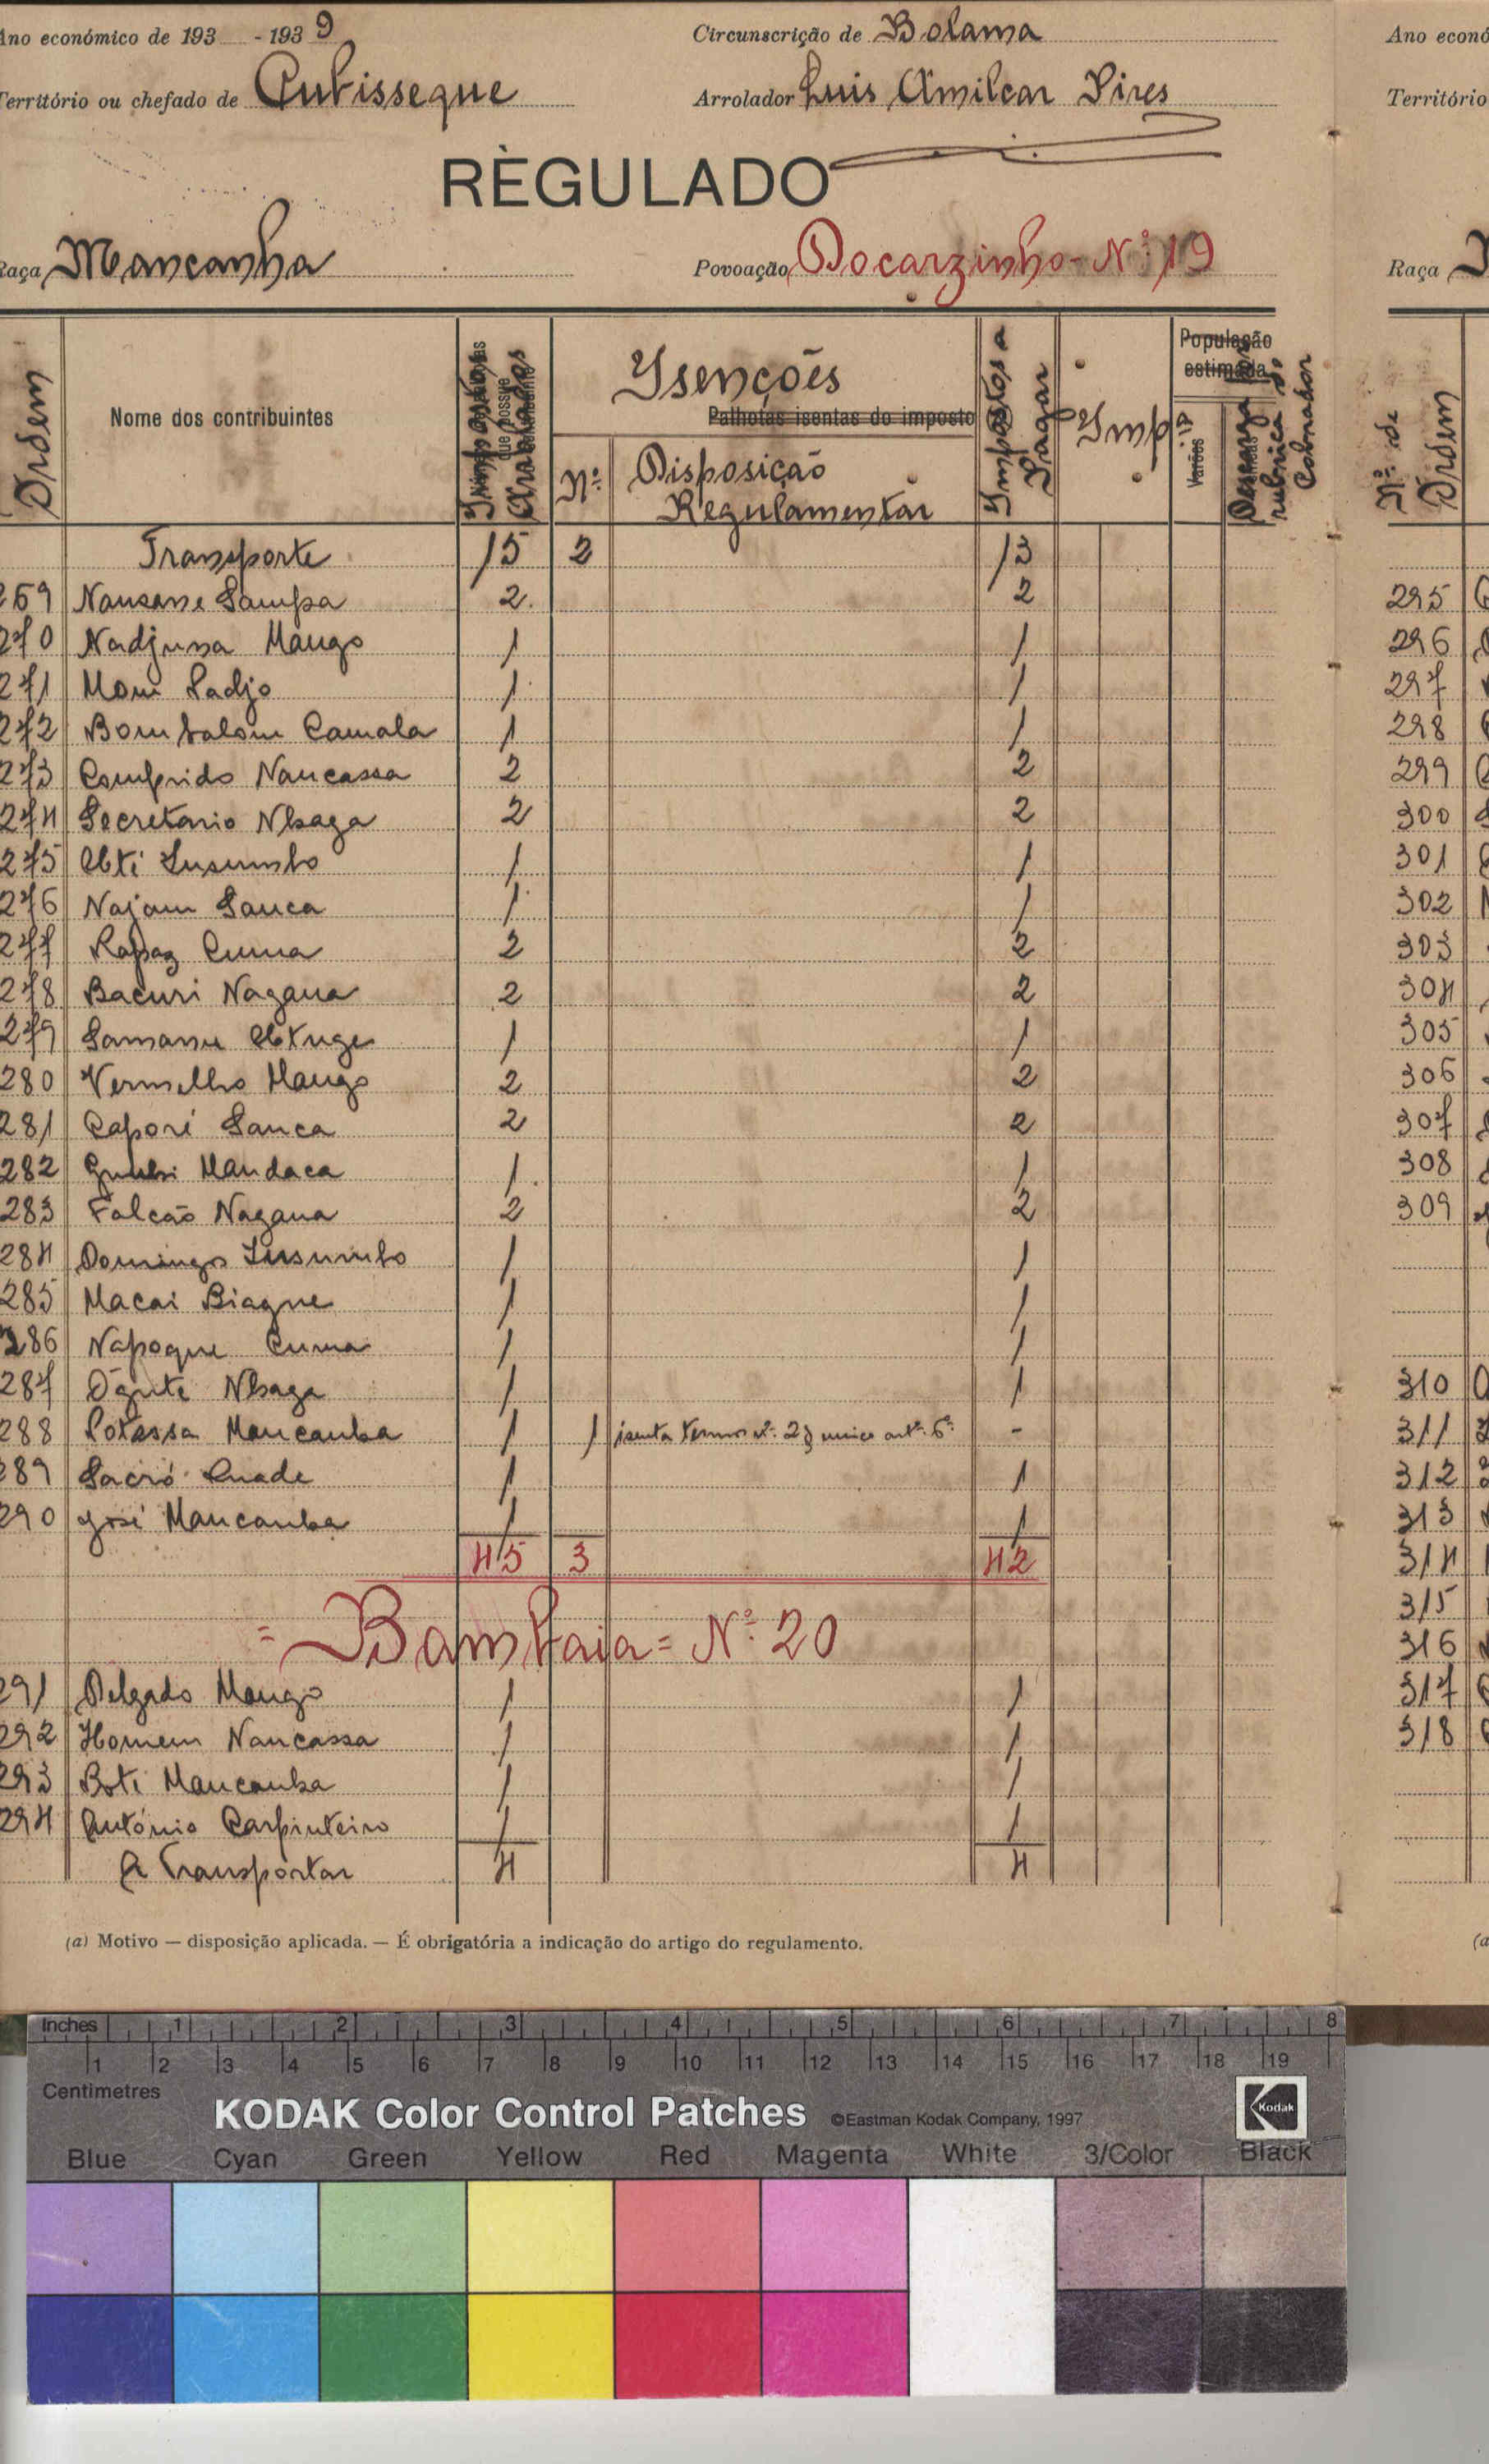 Ano económico de 193 - 1939
Circunscrição de Bolama
Território ou chefado de Cubisseque
Arrolador Luis Amilcar Pires
RÈGULADO
Raça Mancanha
Povoação Docarzinho - Nº 19
Ordem
Nome dos contribuintes
Impostos Arrolados
Isenções
Palhotas isentas do imposto
Nº
Disposição Regulamentar
Impostos a Pagar
Imp.
População estimada
Varões
Descarga por rubrica do Cobrador
Transporte 15 2 13
269 Nansane Sampa 2 2
270 Nadjuna Mango 1 1
271 Moni Sadjo 1 1
272 Bombalom Camala 1 1
273 Comprido Nancassa 2 2
274 Secretario Nbaga 2 2
275 Obti Susumbo 1 1
276 Najam Sanca 1 1
277 Rapaz Cuma 2 2
278 Bacuri Nagana 2 2
279 Samane 1 1
280 Vermelho Mango 2 2
281 Caporé Sanca 2 2
282 Mandaca 1 1
283 Falcão Nagana 2 2
284 Domingos Susumbo 1 1
285 Macai Biague 1 1
286 Napoque Cuma 1 1
287 Nbaga 1 1
288 Potassa Mancanha 1 1 isenta termos nº. 2 § unico artº. 6º. -
289 Sacró Quade 1 1
290 José Mancanha 1 1
45 3 42
= Bambaia = Nº 20
291 Delgado Mango 1 1
292 Homem Nancassa 1 1
293 Boti Mancanha 1 1
294 António Carpinteiro 1 1
A Transportar 4 4
(a) Motivo — disposição aplicada. — É obrigatória a indicação do artigo do regulamento.
Ano econó
Território
Raça
Nº. de Ordem
295
296
297
298
299
300
301
302
303
304
305
306
307
308
309
310
311
312
313
314
315
316
317
318
(a
Inches 1 2 3 4 5 6 7 8
1 2 3 4 5 6 7 8 9 10 11 12 13 14 15 16 17 18 19
Centimetres
KODAK Color Control Patches ©Eastman Kodak Company, 1997 Kodak
Blue Cyan Green Yellow Red Magenta White 3/Color Black